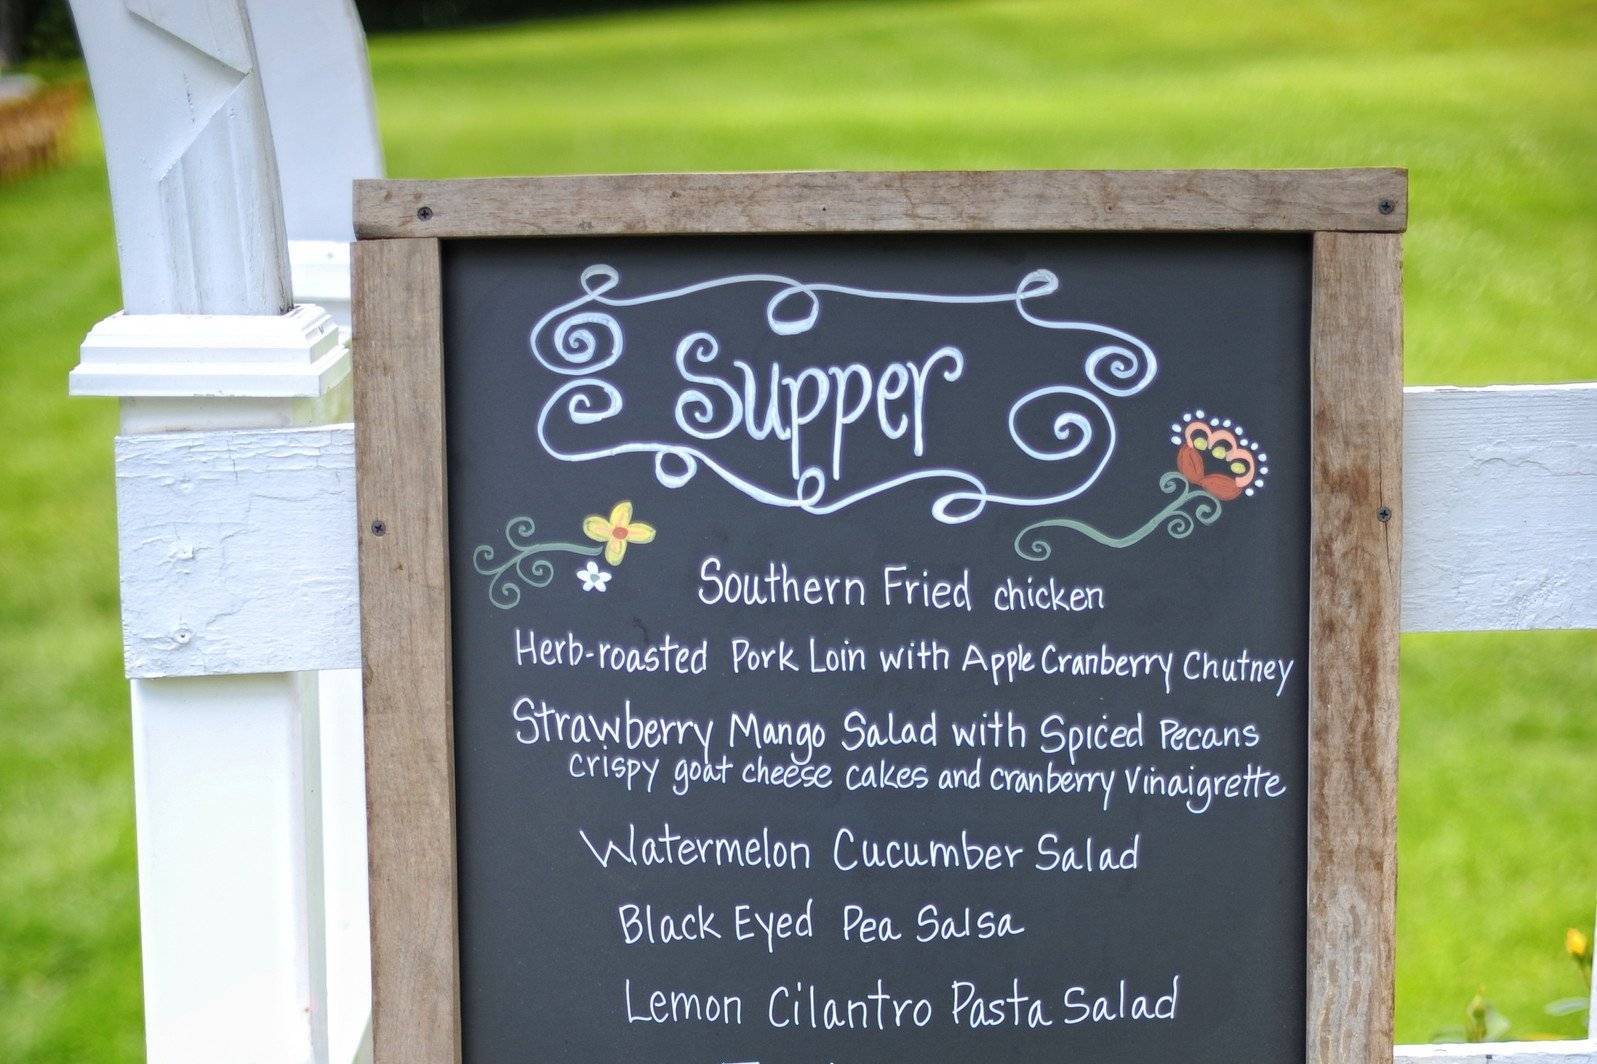 Supper
Southern Fried chicken
Herb-roasted Pork Loin with Apple Cranberry Chutney
Strawberry Mango Salad with Spiced Pecans
crispy goat cheese cakes and cranberry Vinaigrette
Watermelon Cucumber Salad
Black Eyed Pea Salsa
Lemon Cilantro Pasta Salad